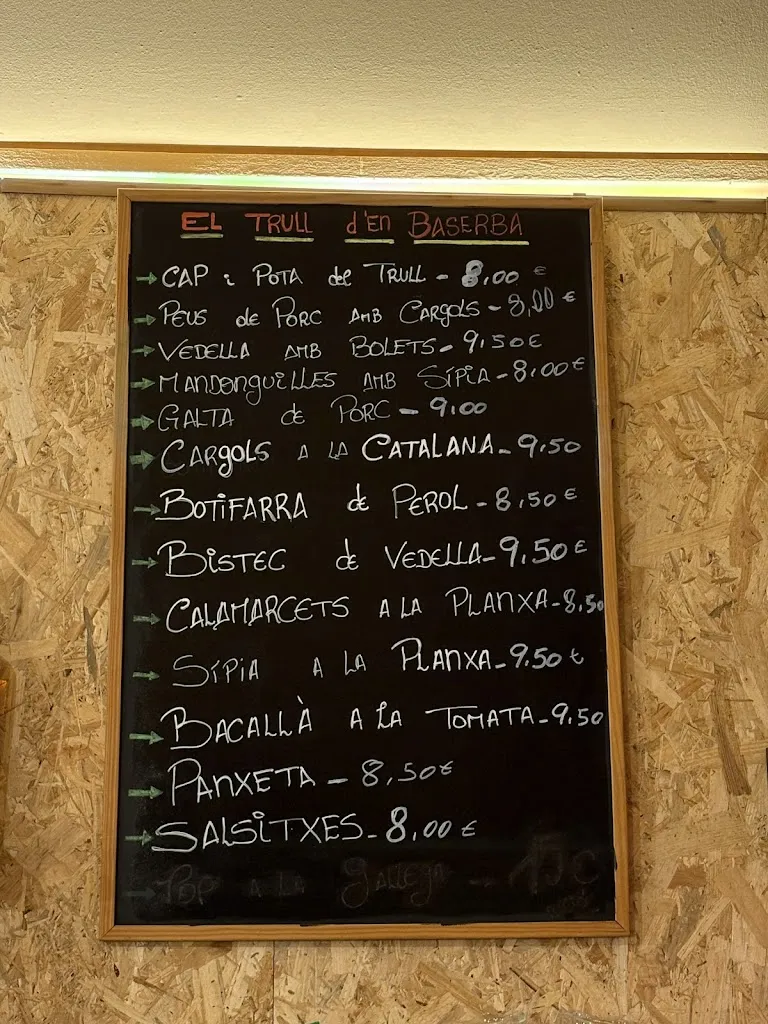 EL TRULL d'En BASERBA
CAP i POTA del TRULL - 8,00 €
PEUS de PORC AMB CARGOLS - 8,00 €
VEDELLA AMB BOLETS - 9,50€
MANDONGUILLES AMB SÍPIA - 8,00€
GALTA de PORC - 9,00
CARGOLS A LA CATALANA - 9,50
BOTIFARRA de PEROL - 8,50€
BISTEC de VEDELLA - 9,50€
CALAMARCETS A LA PLANXA - 8,50
SÍPIA A LA PLANXA - 9,50€
BACALLÀ A LA TOMATA - 9,50
PANXETA - 8,50€
SALSITXES - 8,00€
POP a la gallega -